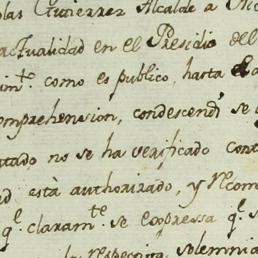 Gutierrez Alcalde
actualidad en el Presidio del
im.to como es publico, hasta el
omprehension, condescend.
tado no se ha verificado
está authorizado, y
q.e claram.te se expressa q.e
solemnia